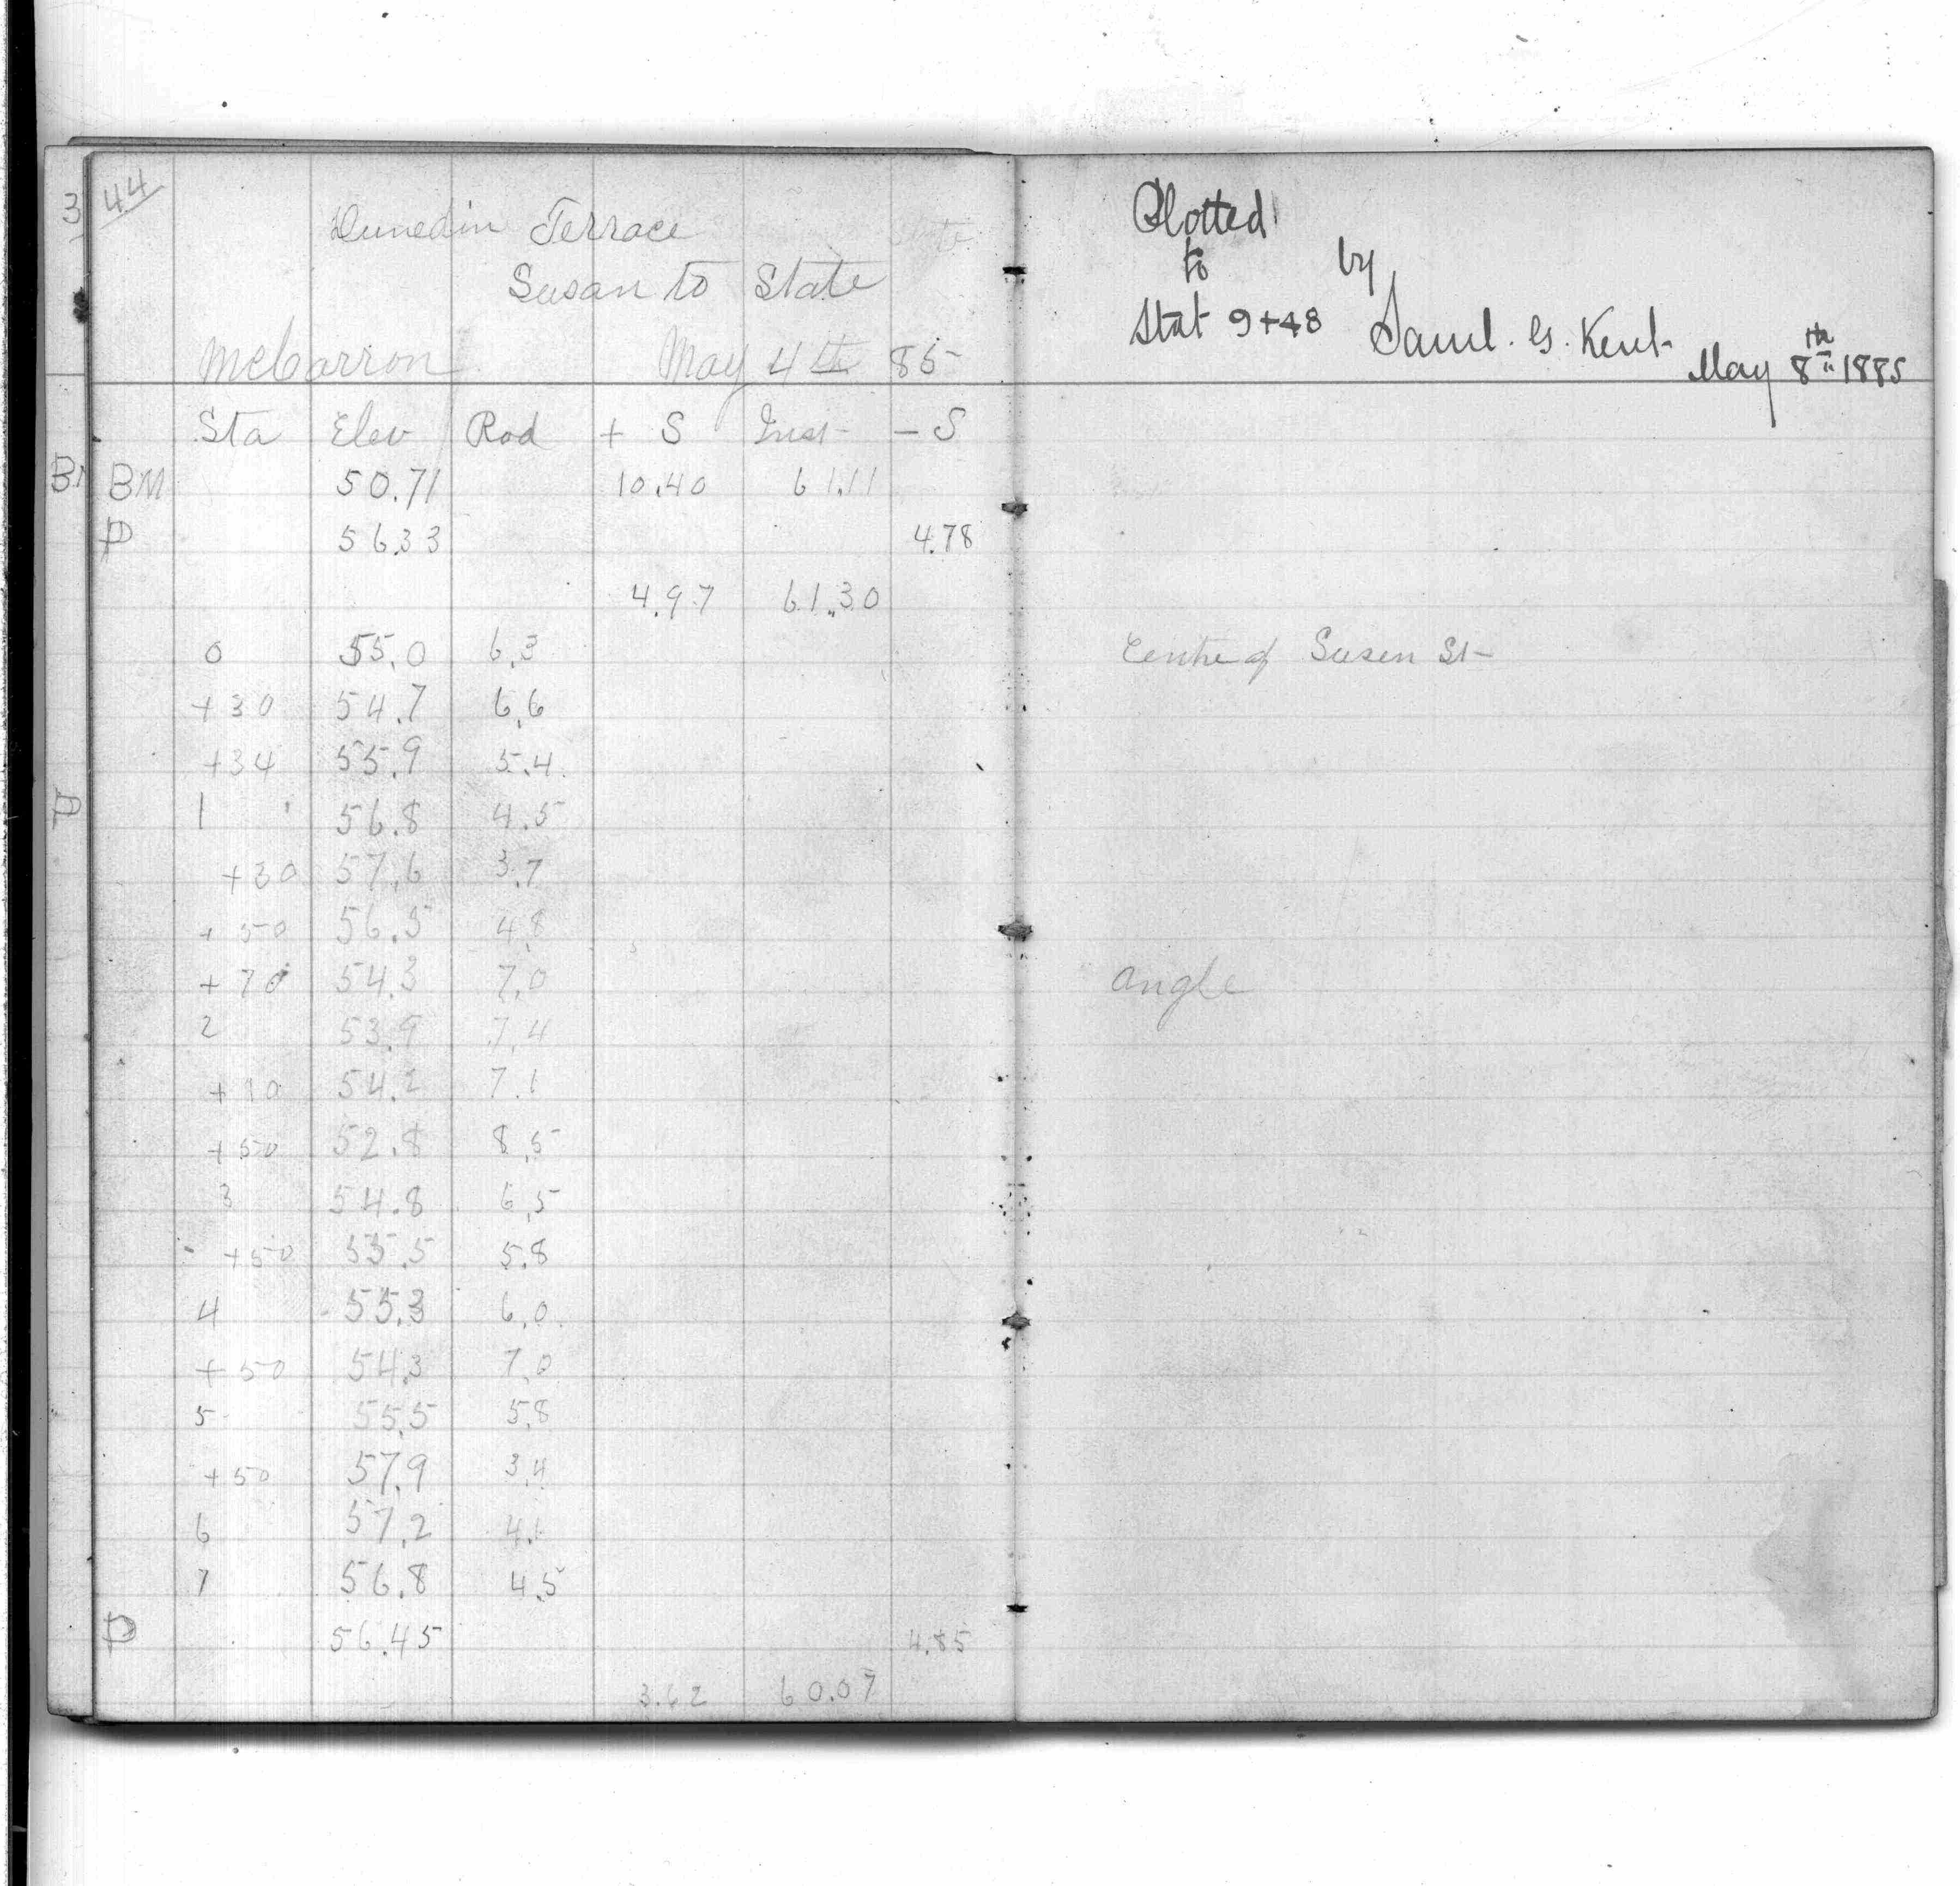 3
44
Dunedin Terrace
Susan to State
McCarron May 4th 85
Sta Elev Rod + S Inst - S
BM 50.71 10.40 61.11
P 56.33 4.78
4.97 61.30
0 55.0 6.3
+30 54.7 6.6
+34 55.9 5.4
1 56.8 4.5
+30 57.6 3.7
+50 56.5 4.8
+70 54.3 7.0
2 53.9 7.4
+10 54.2 7.1
+50 52.8 8.5
3 54.8 6.5
+50 55.5 5.8
4 55.3 6.0
+50 54.3 7.0
5 55.5 5.8
+50 57.9 3.4
6 57.2 4.1
7 56.8 4.5
P 56.45 4.85
3.62 60.07
Plotted
to by
Stat 9+48 Saml. G. Kent
May 8th 1885
Centre of Susan St
angle